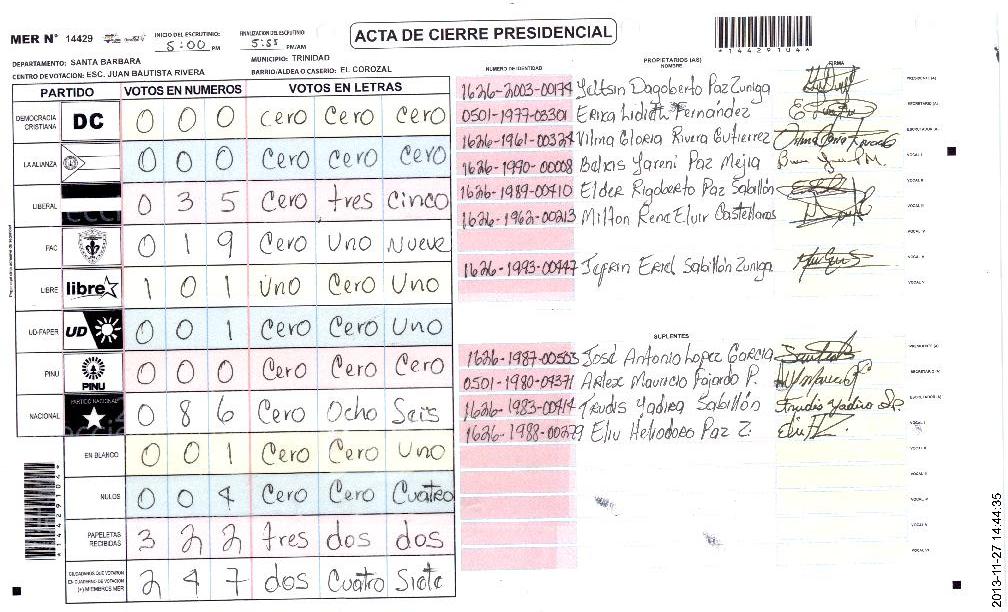 ACTA DE CIERRE PRESIDENCIAL
MER N° 14429
INICIO DEL ESCRUTINIO: 5:00 PM
FINALIZACION DEL ESCRUTINIO: 5:55 PM/AM
*14429104*
DEPARTAMENTO: SANTA BARBARA
MUNICIPIO: TRINIDAD
CENTRO DE VOTACION: ESC. JUAN BAUTISTA RIVERA
BARRIO/ALDEA O CASERIO: EL COROZAL
PARTIDO VOTOS EN NUMEROS VOTOS EN LETRAS
DEMOCRACIA CRISTIANA DC 0 0 0 cero cero cero
LA ALIANZA 0 0 0 cero cero cero
LIBERAL 0 3 5 Cero tres cinco
PAC 0 1 9 Cero Uno Nueve
LIBRE libre 1 0 1 Uno Cero Uno
UD-FAPER UD 0 0 1 Cero Cero Uno
PINU PINU 0 0 0 Cero Cero Cero
NACIONAL PARTIDO NACIONAL 0 8 6 Cero Ocho Seis
EN BLANCO 0 0 1 Cero Cero Uno
NULOS 0 0 4 Cero Cero Cuatro
PAPELETAS RECIBIDAS 3 2 2 tres dos dos
CIUDADANOS QUE VOTARON EN CUADERNO DE VOTACION (+) MIEMBROS MER 2 4 7 dos Cuatro Siete
*14429104*
PROPIETARIOS (AS)
NUMERO DE IDENTIDAD NOMBRE FIRMA
1626-2003-00174 Yeltsin Dagoberto Paz Zuniga PRESIDENTE (A)
0501-1977-03301 Erika Lidieth Fernández SECRETARIO (A)
1626-1961-00324 Vilma Gloria Rivera Gutierrez ESCRUTADOR (A)
1626-1990-00008 Belkis Yareni Paz Mejia VOCAL I
1626-1989-00410 Elder Rigoberto Paz Sabillón VOCAL II
1626-1962-00213 Milton Rene Elvir Castellanos VOCAL III
VOCAL IV
1626-1993-00447 Jefrin Eriel Sabillón Zuniga VOCAL V
SUPLENTES
1626-1987-00503 José Antonio Lopez Garcia PRESIDENTE (A)
0501-1980-04371 Arlex Mauricio Fajardo P. SECRETARIO (A)
1626-1983-00414 Trudis Yadira Sabillón ESCRUTADOR (A)
1626-1988-00279 Eliu Heliodoro Paz Z. VOCAL I
VOCAL II
VOCAL III
VOCAL IV
VOCAL V
VOCAL VI
2013-11-27 14:44:35